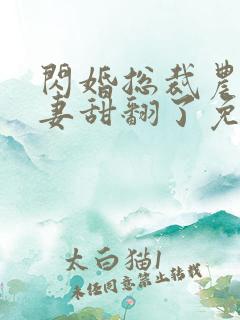 闪婚总裁农
妻甜翻了免
太白猫1
未经同意禁止转载